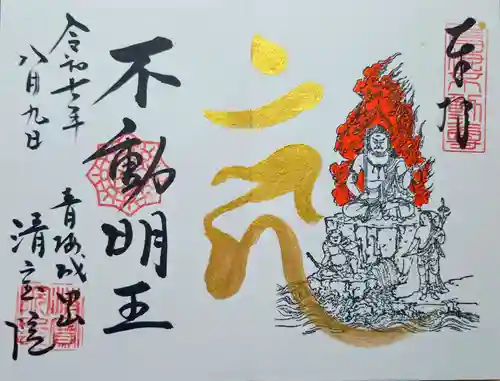 奉拝
不動明王
令和七年
八月九日
青梅成田山
清宝院